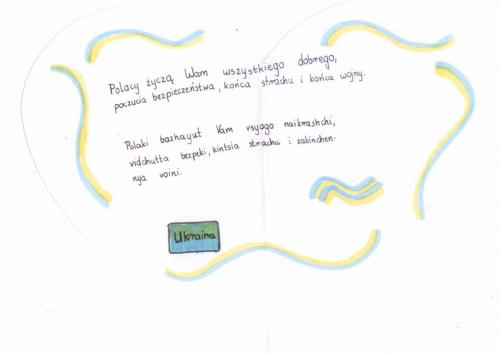 Polacy życzą Wam wszystkiego dobrego,
poczucia bezpieczeństwa, końca strachu i końca wojny.
Polaki bazhayut Vam vsyogo naikrashchi,
vidchutta bezpeki, kintsia strachu i zakinchen-
nya voini.
Ukraina